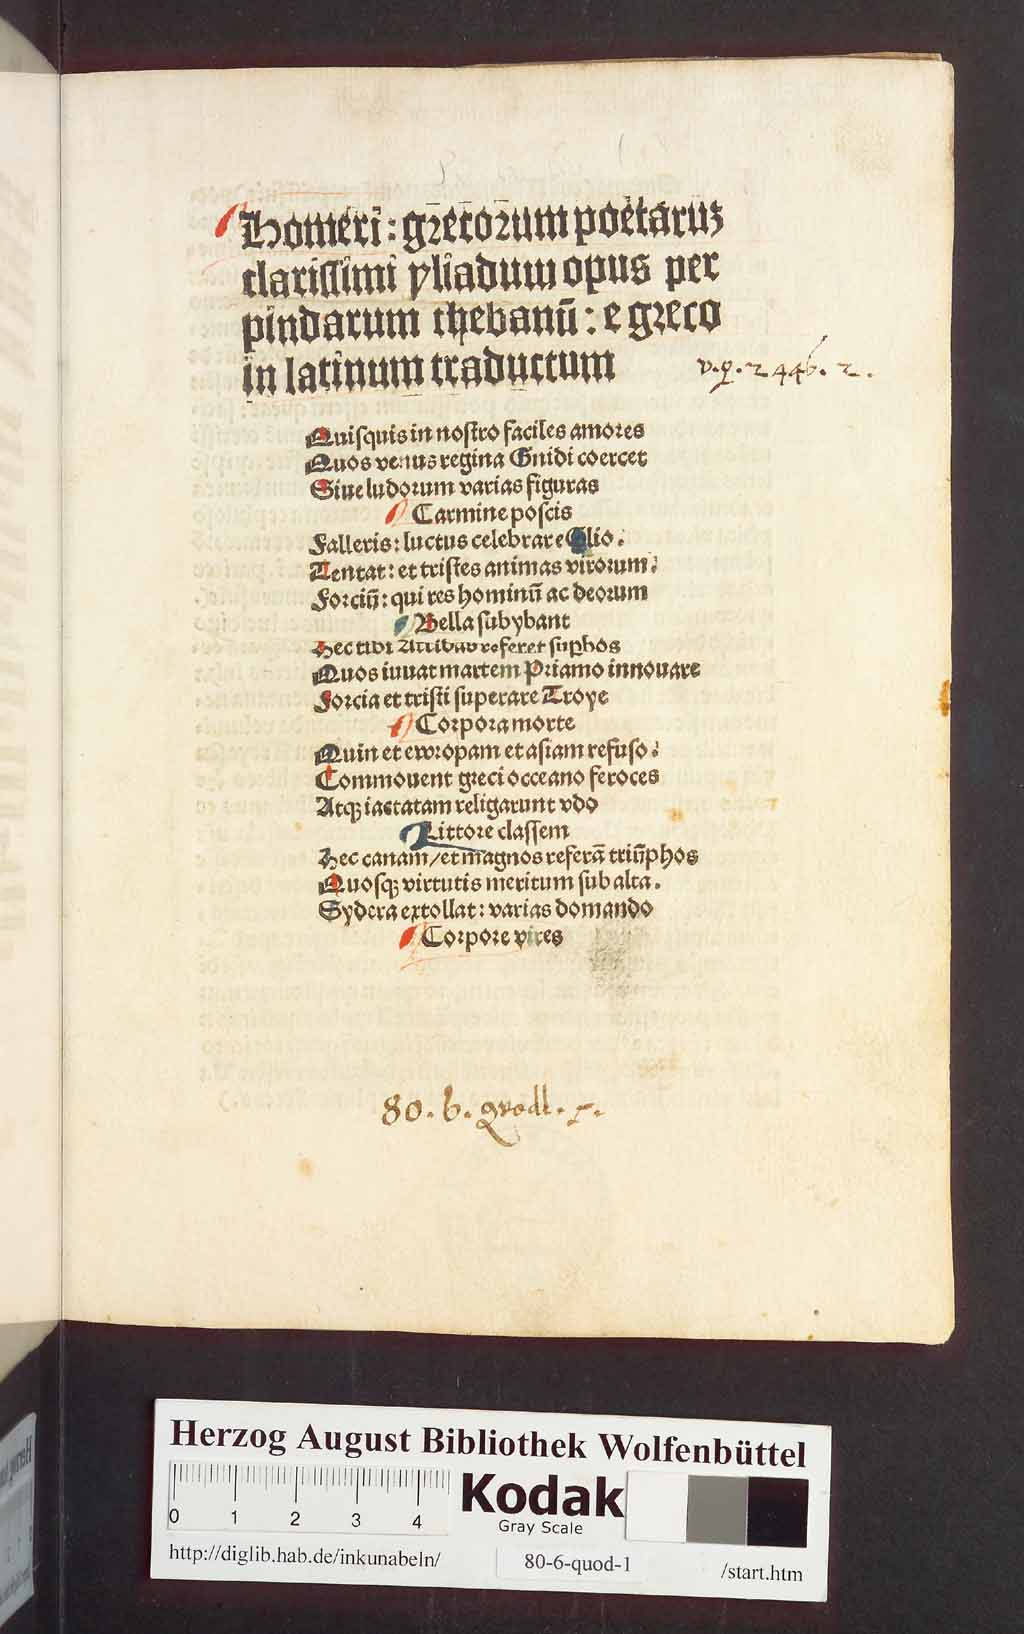 Homeri: grecorum poetaruʒ
clarissimi yliadum opus per
pindarum thebanū: e greco
in latinum traductum
v. q. 2446. 2.
Quisquis in nostro faciles amores
Quos venus regina Gnidi coercet
Siue ludorum varias figuras
Carmine poscis
Falleris: luctus celebrare Clio.
Tentat: et tristes animas virorum:
Forciū: qui res hominū ac deorum
Bella subybant
Hec tibi referet suphos
Quos iuuat martem Priamo innouare
Forcia et tristi superare Troye
Corpora morte
Quin et ewropam et asiam refuso:
Commouent greci occeano feroces
Atqȝ iactatam religarunt vdo
Littore classem
Hec canam/et magnos referā triūphos
Quosqȝ virtutis meritum sub alta.
Sydera extollat: varias domando
Corpore vires
80. 6. quodl.
Herzog August Bibliothek Wolfenbüttel
0 1 2 3 4
Kodak
Gray Scale
http://diglib.hab.de/inkunabeln/
80-6-quod-1
/start.htm